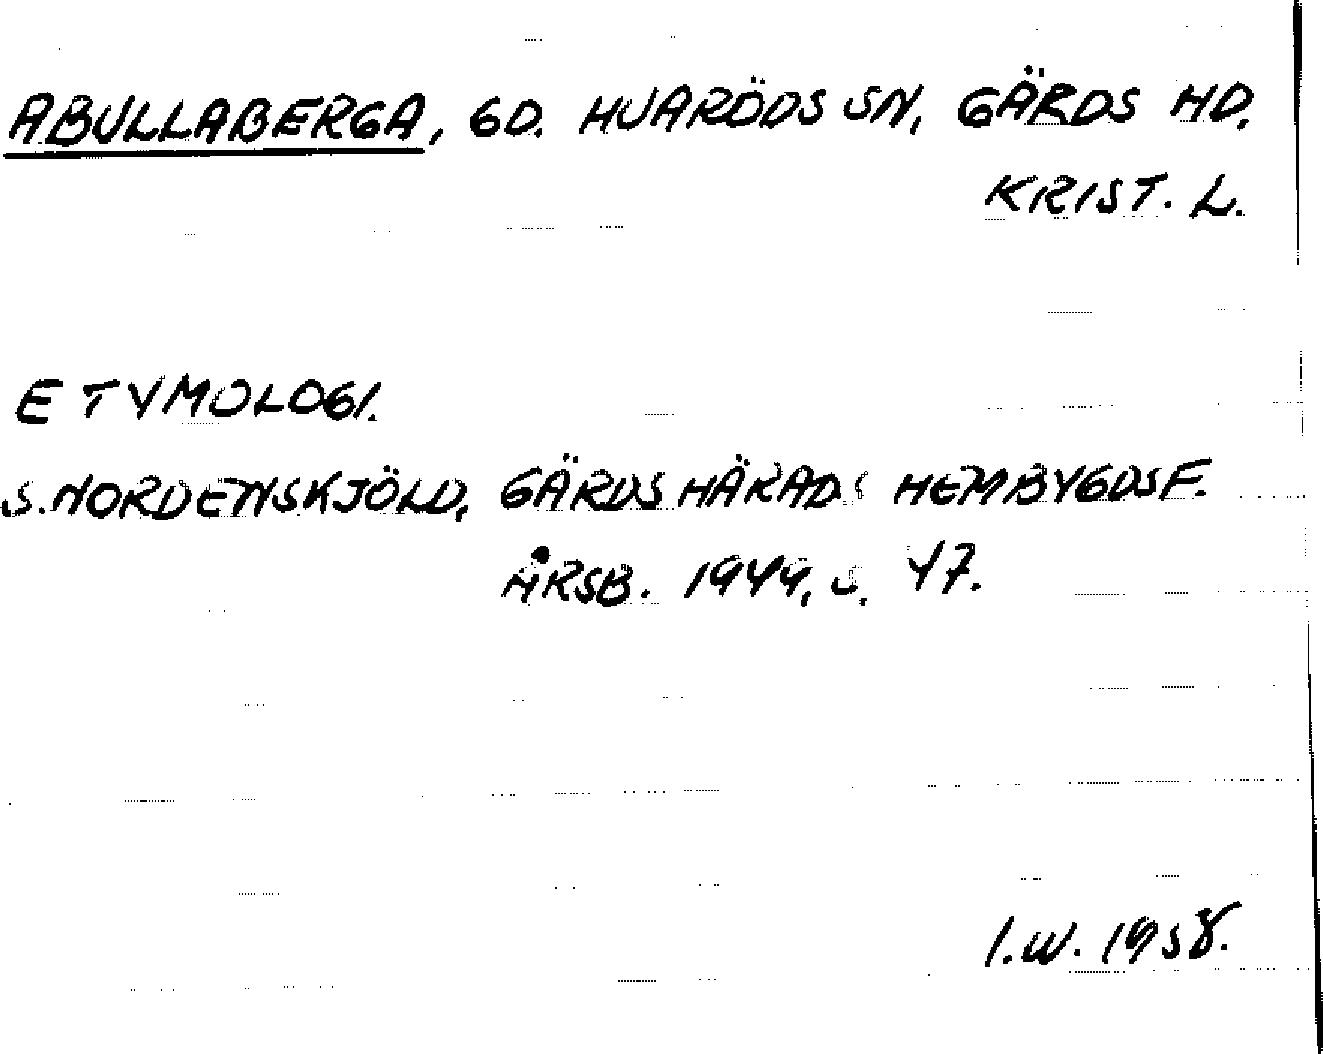 ABULLABERGA, GD. HUARÖDS SN, GÄRDS HD.
KRIST. L.
ETYMOLOGI.
S. NORDENSKJÖLD, GÄRDS HÄRADS HEMBYGDSF.
ÅRSB. 1944, S. 47.
I.W. 1958.